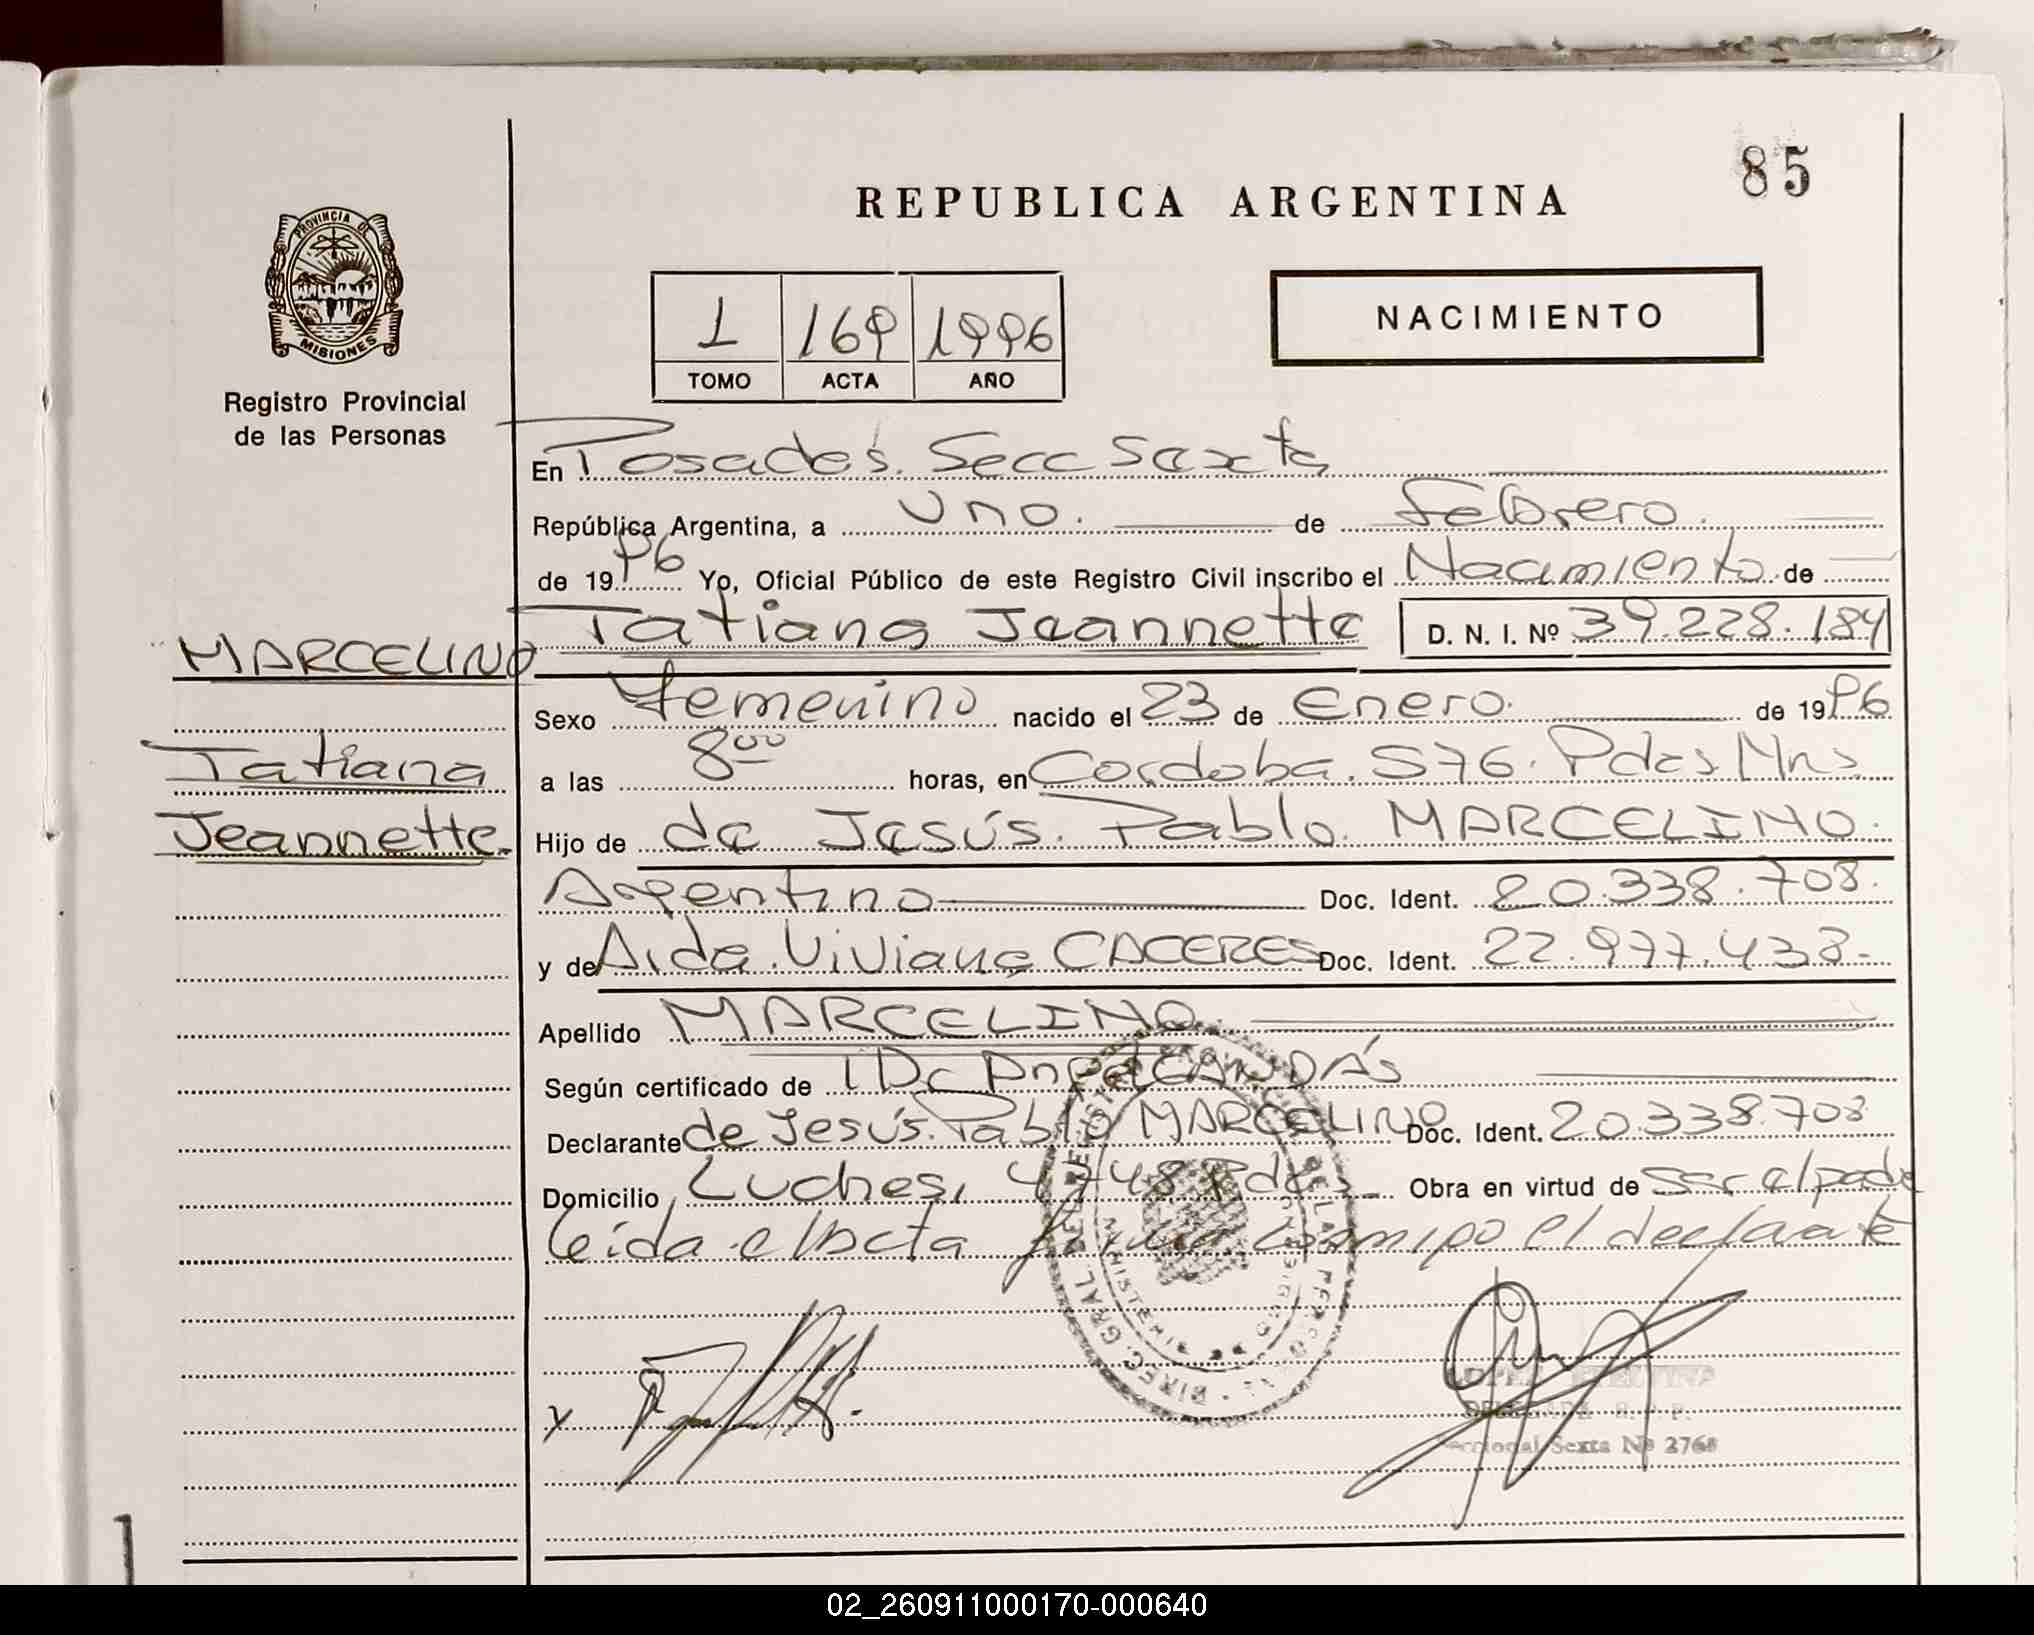 85
REPUBLICA ARGENTINA
PROVINCIA DE
MISIONES
Registro Provincial
de las Personas
1 169 1996
TOMO ACTA AÑO
NACIMIENTO
En Posadas. Secc Sexta
República Argentina, a uno. de Febrero.
de 1996 Yo, Oficial Público de este Registro Civil inscribo el Nacimiento de
MARCELINO
Tatiana
Jeannette.
Tatiana Jeannette D. N. I. Nº 39.228.184
Sexo Femenino nacido el 23 de Enero. de 1996
a las 8 00 horas, en Cordoba. 576. Pdas Mns.
Hijo de de Jesús. Pablo. MARCELINO.
Argentino Doc. Ident. 20.338.708.
y de Aida. Viviana CACERES Doc. Ident. 22.977.438.-
Apellido MARCELINO
Según certificado de
Declarante de Jesús. Pablo MARCELINO Doc. Ident. 20.338.708
Domicilio Luches, 4748 Pdas Obra en virtud de ser el padre
leida el acta firma conmigo el declarante
DIREC. GRAL. DEL REGISTRO DE LAS PERSONAS
x
LOPEZ
DELEGADA R. P. P.
Seccional Sexta Nº 2768
02_260911000170-000640